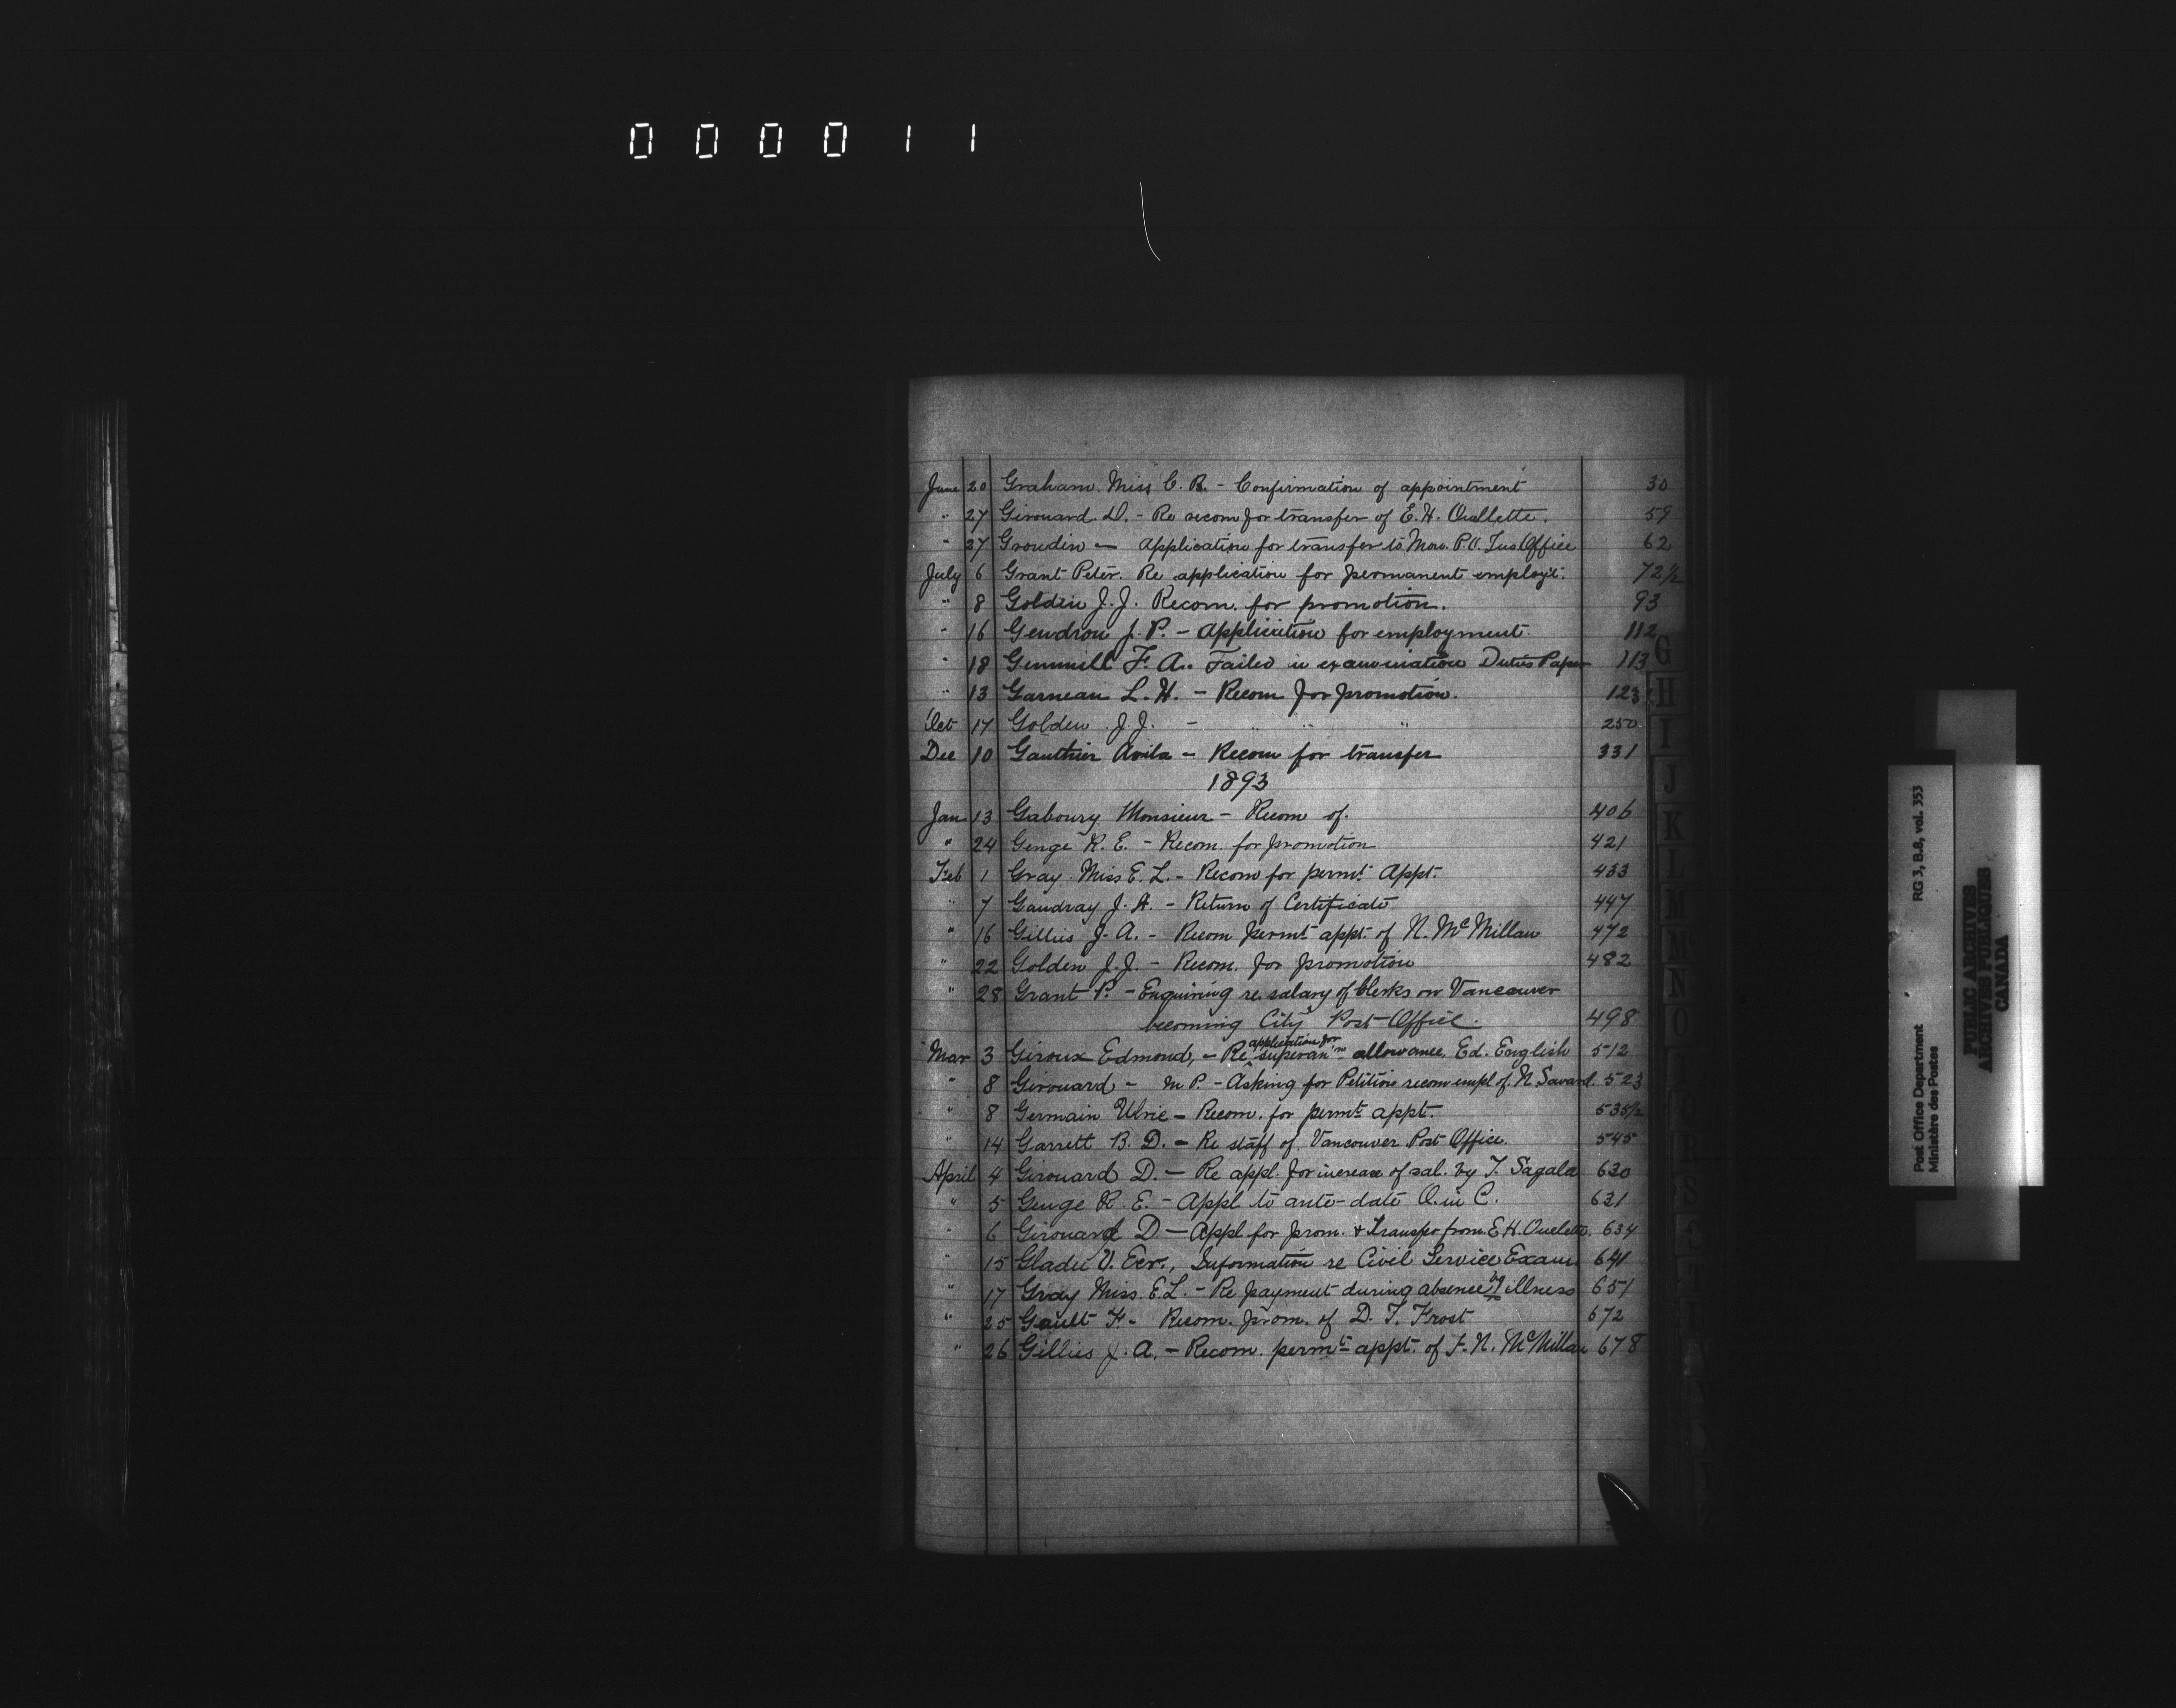 000011
June 20 Graham Miss C. R. - Confirmation of appointment 30
" 27 Girouard D. - Re recom for transfer of E. H. Ouellette. 59
" 27 Grondin — Application for transfer to Mon. P.O. Ins Office 62
July 6 Grant Peter. Re application for permanent employt. 72½
" 8 Golden J. J. Recom. for promotion. 93
" 16 Gendron J. P. - Application for employment. 112
" 18 Gemmill F. A. Failed in examination Duties Paper 113
" 13 Garneau L. H. - Recom for promotion. 123
Oct 17 Golden J. J. - " " " 250
Dec 10 Gauthier Avila - Recom for transfer 331
1893
Jan 13 Gaboury Monsieur - Recom of. 406
" 24 Genge R. E. - Recom. for promotion 421
Feb 1 Gray Miss E. L. - Recom for permt. Appt. 433
" 7 Gaudray J. A. - Return of Certificate 447
" 16 Gillies J. A. - Recom permt appt. of N. McMillan 472
" 22 Golden J. J. - Recom. for promotion 482
" 28 Grant P. - Enquiring re. salary of Clerks on Vancouver
becoming City Post Office. 498
application for
Mar 3 Giroux Edmond, - Re superan'n allowance, Ed. English 512
" 8 Girouard - M P - Asking for Petition recom empl of N. Savard. 523
" 8 Germain Ulric - Recom. for permt appt. 535½
" 14 Garrett B. D. - Re staff of Vancouver Post Office. 545
April 4 Girouard D. - Re appl. for increase of sal. by T. Sagala 630
" 5 Genge R. E. - Appl to ante-date O. in C. 631
" 6 Girouard D - Appl for prom. & transfer from E H. Ouelette. 634
" 15 Gladu V. Ecr., Information re Civil Service Exam. 641
" 17 Gray Miss. E. L. - Re payment during absence by illness 651
" 25 Gault F. - Recom. prom. of D. T. Frost 672
" 26 Gillies J. A. - Recom. permt appt. of F. N. McMillan 678
G
H
I
J
K
L
M
N
O
Post Office Department RG 3, B.8, vol. 353
Ministère des Postes
PUBLIC ARCHIVES
ARCHIVES PUBLIQUES
CANADA